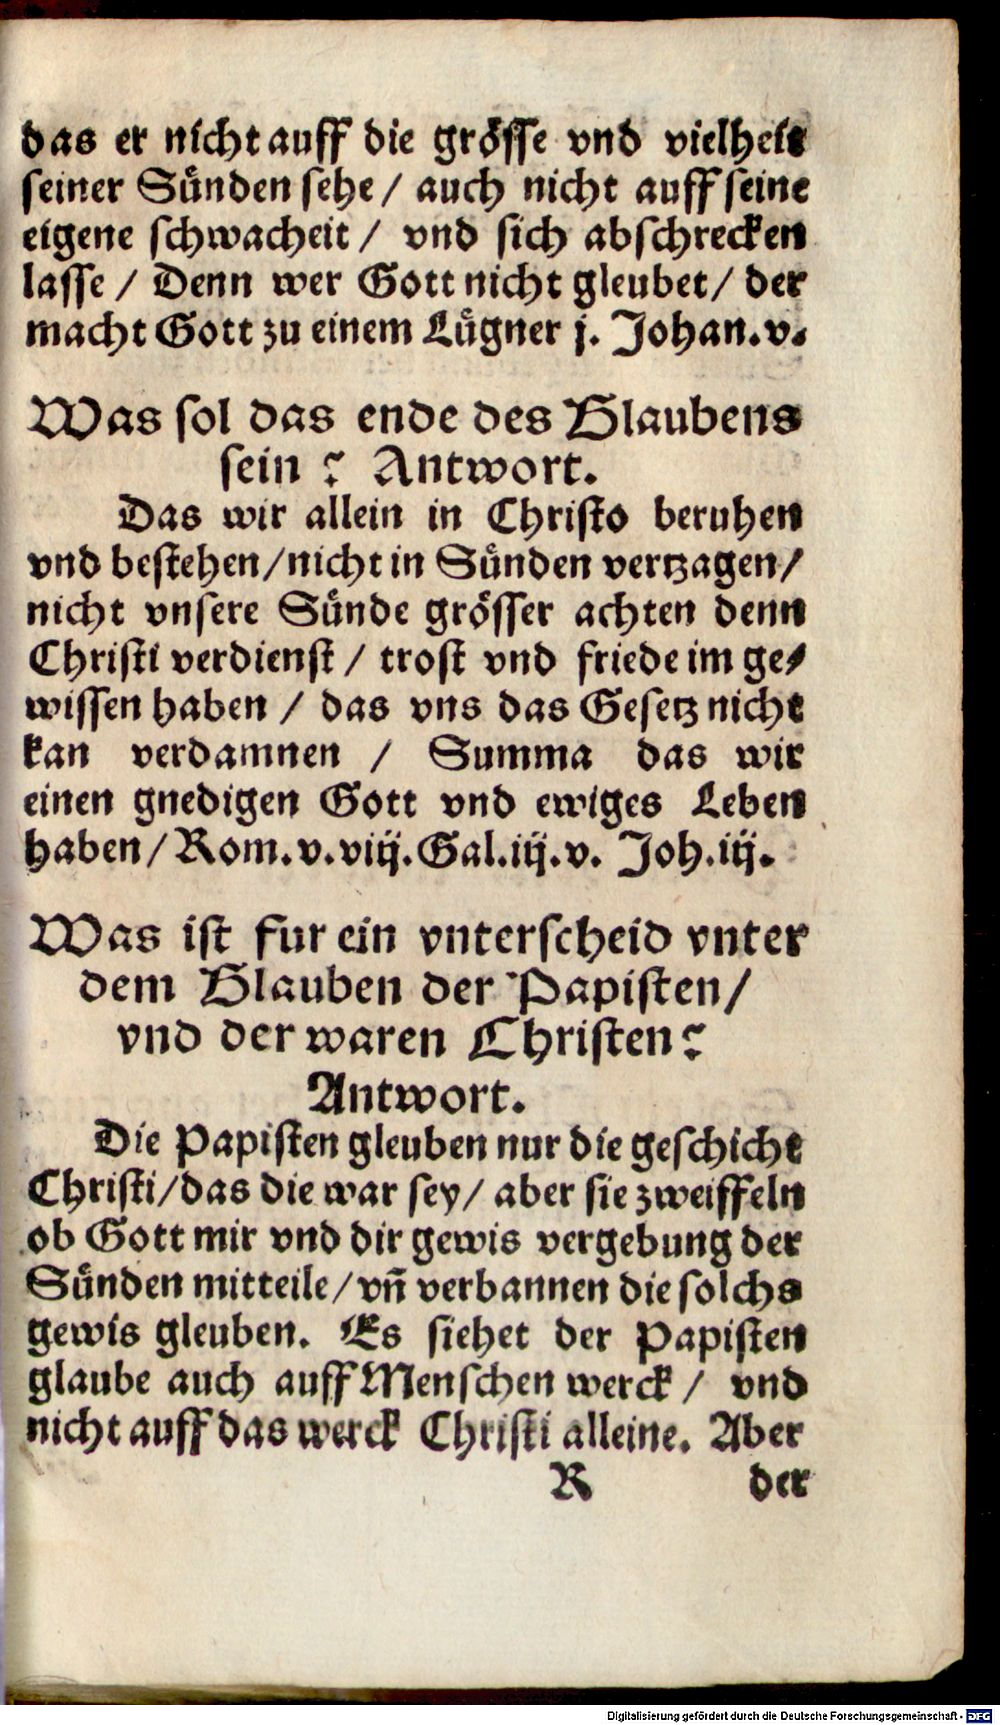 das er nicht auff die grösse vnd vielheit
seiner Sünden sehe / auch nicht auff seine
eigene schwacheit / vnd sich abschrecken
lasse / Denn wer Gott nicht gleubet / der
macht Gott zu einem Lügner j. Johan. v.
Was sol das ende des Glaubens
sein ? Antwort.
Das wir allein in Christo beruhen
vnd bestehen / nicht in Sünden vertzagen /
nicht vnsere Sünde grösser achten denn
Christi verdienst / trost vnd friede im ge-
wissen haben / das vns das Gesetz nicht
kan verdamnen / Summa das wir
einen gnedigen Gott vnd ewiges Leben
haben / Rom. v. viij. Gal. iij. v. Joh. iij.
Was ist fur ein vnterscheid vnter
dem Glauben der Papisten /
vnd der waren Christen ?
Antwort.
Die Papisten gleuben nur die geschicht
Christi / das die war sey / aber sie zweiffeln
ob Gott mir vnd dir gewis vergebung der
Sünden mitteile / vñ verbannen die solchs
gewis gleuben. Es siehet der Papisten
glaube auch auff Menschen werck / vnd
nicht auff das werck Christi alleine. Aber
R der
Digitalisierung gefördert durch die Deutsche Forschungsgemeinschaft - DFG